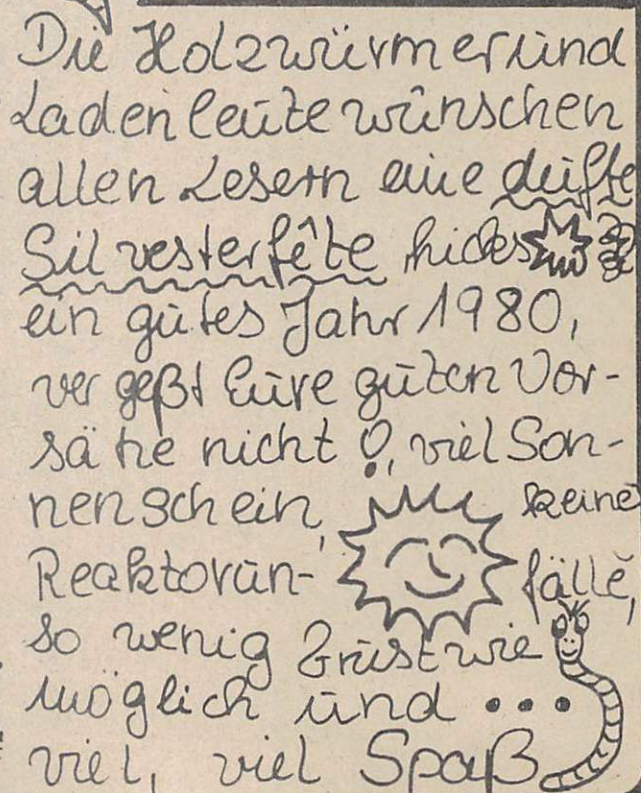 Die Holzwürmer und
Ladenleute wünschen
allen Lesern eine dufte
Silvesterfête
ein gutes Jahr 1980,
vergeßt Eure guten Vor-
sätze nicht!, viel Son-
nenschein, keine
Reaktorun- fälle,
so wenig Frust wie
möglich und ...
viel, viel Spaß